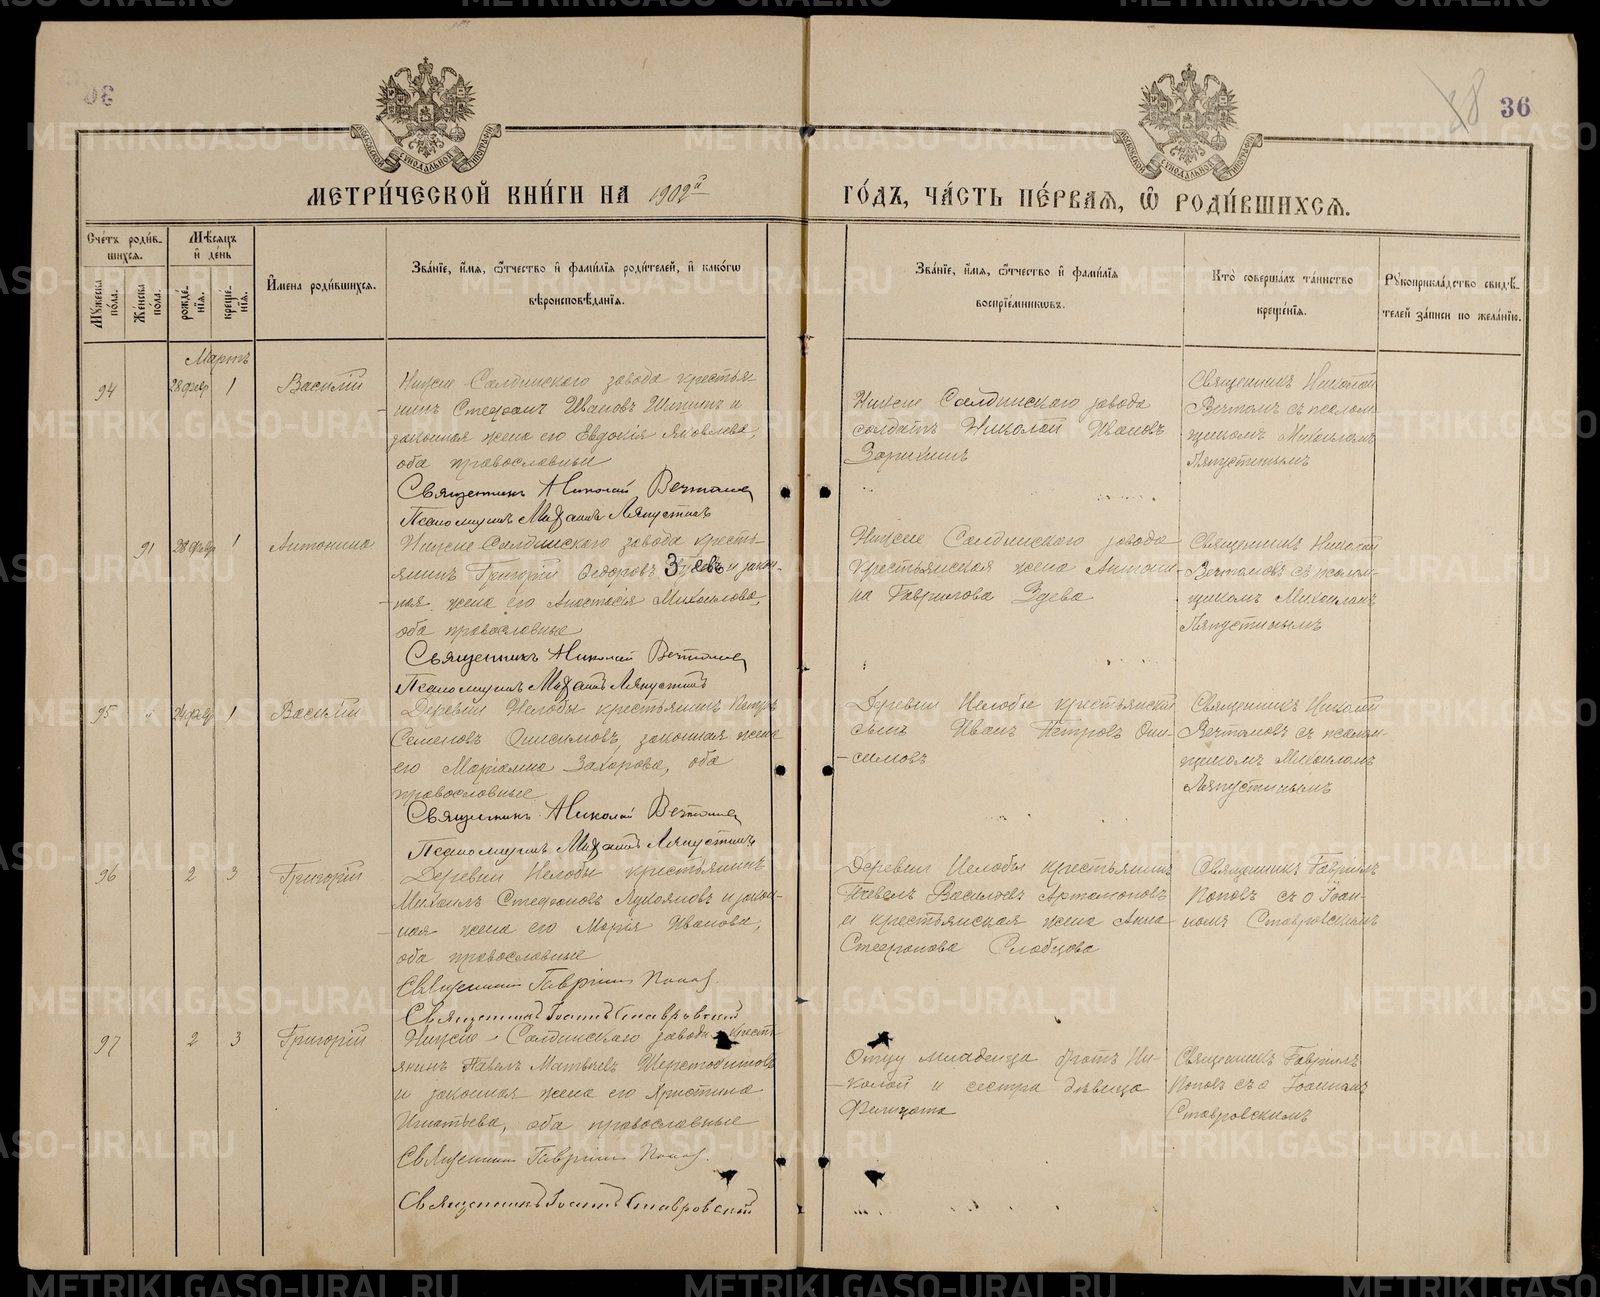 36
38
МЕТРИ́ЧЕСКОЙ КНИ́ГИ НА 1902й
ГО́ДЪ, ЧА́СТЬ ПЕ́РВАЯ, Ѿ РОДИ́ВШИХСѦ.
Сче́тъ роди́в-
шихся.
Мѣ́сяцъ
и҆ де́нь
Мꙋ́жеска по́ла.
Же́нска по́ла.
рожде́-нїѧ.
креще́-нїѧ.
И҆́мена роди́вшихся.
Зва́нїе, и҆́мѧ, ѻ҆́тчество и҆ фами́лїѧ роди́телей, и҆ како́гѡ
вѣроисповѣ́данїѧ.
Зва́нїе, и҆́мѧ, ѻ҆́тчество и҆ фами́лїѧ
воспрїе́мникѡвъ.
Кто̀ соверша́лъ та́инство
креще́нїѧ.
Рꙋкоприкла́дство свидѣ́-
телей за́писи по жела́нїю.
Мартъ
94 28 февр 1 Василій
Нижне Салдинскаго завода крестья-
нинъ Стефанъ Ивановъ Шипинъ и
законная жена его Евдокія Яковлева,
оба православные
Священникъ Николай Вечтомов
Псаломщикъ Михаилъ Ляпустинъ
Нижне Салдинскаго завода
солдатъ Николай Ивановъ
Зорихинъ
Священникъ Николай
Вечтомъ съ псалом-
щикомъ Михаиломъ
Ляпустинымъ
91 28 февр 1 Антонина
Нижне Салдинскаго завода кресть-
янинъ Григорій Ѳедоровъ Зуевъ и закон-
ная жена его Анастасія Михаилова,
оба православные
Священникъ Николай Вечтомов
Псаломщикъ Михаилъ Ляпустинъ
Нижне Салдинскаго завода
крестьянская жена Антони-
на Гаврилова Зуева
Священникъ Николай
Вечтомовъ съ псалом-
щикомъ Михаиломъ
Ляпустинымъ
95 " 24 февр 1 Василій
Деревни Нелобы крестьянинъ Петръ
Семеновъ Онисимовъ, законная жена
его Маріамна Захарова, оба
православные
Священникъ Николай Вечтомов
Псаломщикъ Михаилъ Ляпустинъ
Деревни Нелобы крестьянскій
сынъ Иванъ Петровъ Они-
симовъ
Священникъ Николай
Вечтомовъ съ псалом-
щикомъ Михаиломъ
Ляпустинымъ
96 2 3 Григорій
Деревни Нелобы крестьянинъ
Михаилъ Стефановъ Лукояновъ и закон-
ная жена его Марія Иванова,
оба православные
Священникъ Гавріилъ Попов.
Священникъ Іоаннъ Ставровскій
Деревни Нелобы крестьянинъ
Павелъ Васильевъ Артамоновъ
и крестьянская жена Анна
Стефанова Слобцова
Священникъ Гавріилъ
Поповъ съ о Іоан-
номъ Ставровскимъ
97 2 3 Григорій
Нижне-Салдинскаго завода крест-
янинъ Павелъ Матвѣевъ Шерстобитовъ
и законная жена его Христина
Игнатьева, оба православные
Священникъ Гавріилъ Попов.
Священникъ Іоаннъ Ставровскій
Отцу младенца братъ Ни-
колай и сестра дѣвица
Филицата
Священникъ Гавріилъ
Поповъ съ о Іоанномъ
Ставровскимъ
METRIKI.GASO-URAL.RU